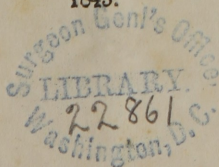 1843.
Surgeon Genl's Office
LIBRARY.
22861
Washington, D.C.